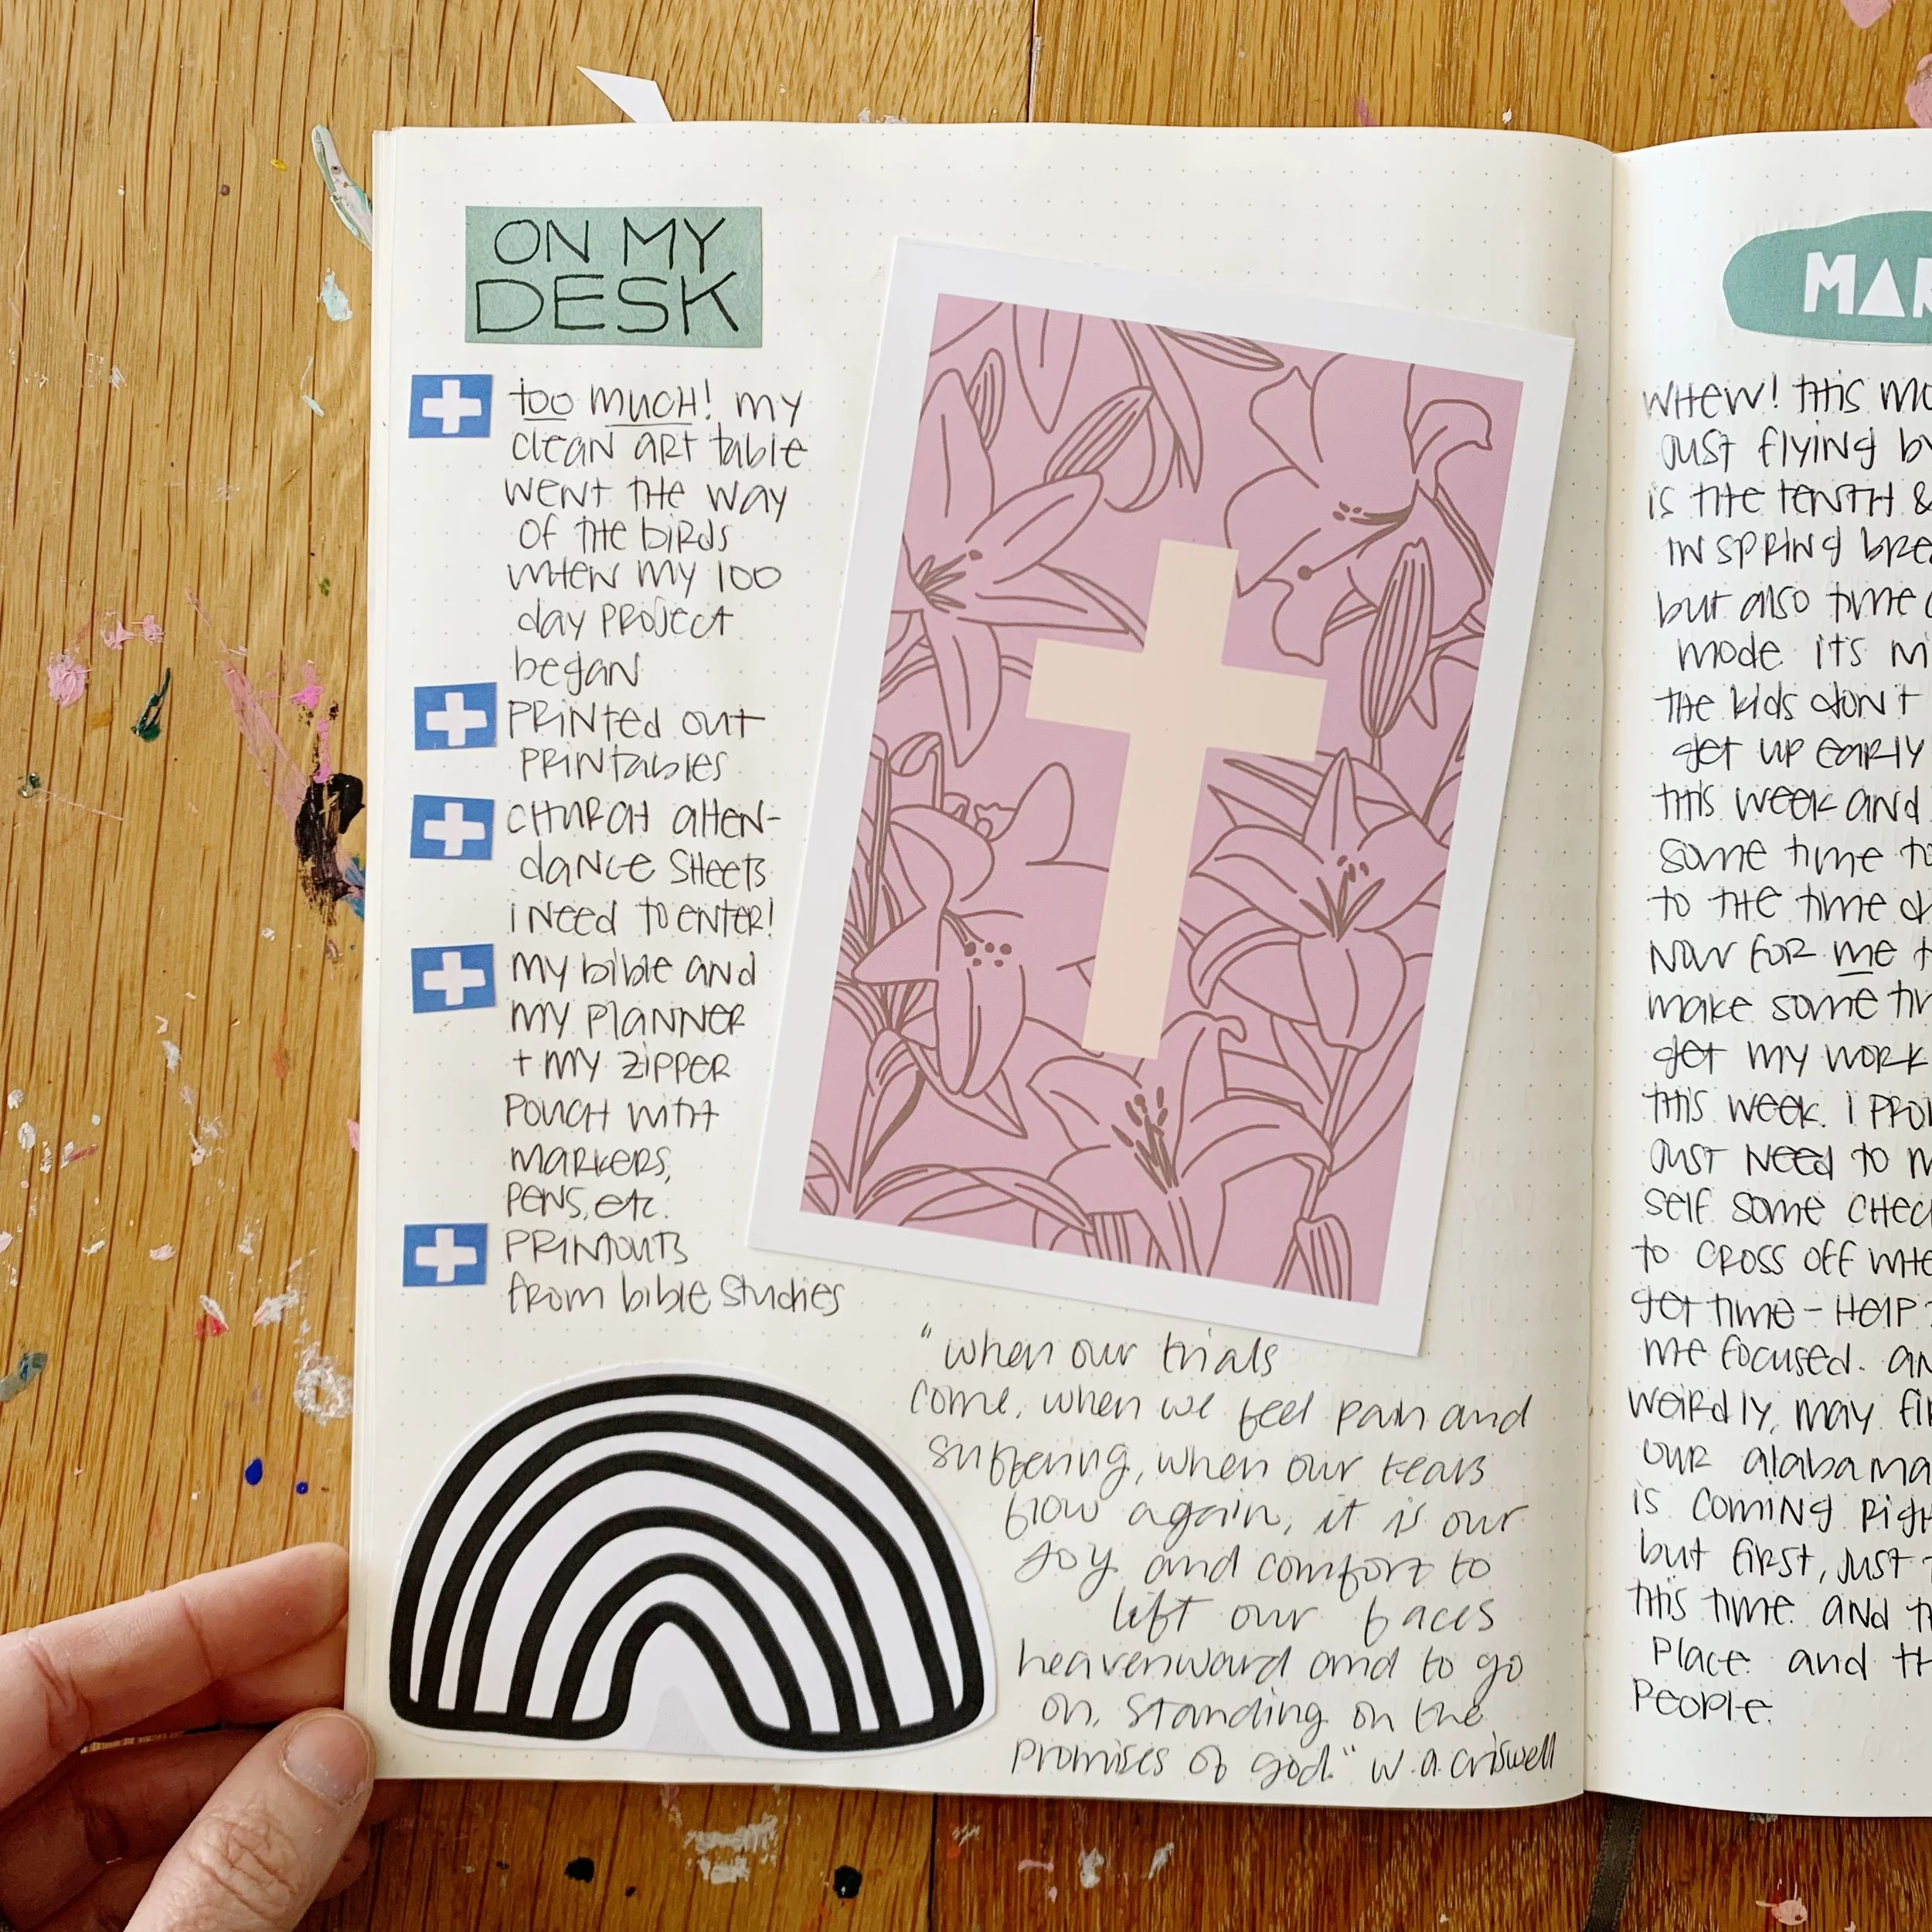 ON MY
DESK
too much! my
clean art table
went the way
of the birds
when my 100
day project
began
printed out
printables
church atten-
dance sheets
i need to enter!
my bible and
my planner
+ my zipper
pouch with
markers,
pens, etc.
printouts
from bible studies
"when our trials
come, when we feel pain and
suffering, when our tears
flow again, it is our
joy and comfort to
lift our faces
heavenward and to go
on, standing on the
promises of god." w.a. criswell
MAR
WHEW! this mo
just flying by
is the tenth &
in spring bre
but also time
mode. it's mi
the kids don't
get up early
this week and
some time to
to the time
now for me t
make some tim
get my work
this week. i pro
just need to m
self some chec
to cross off whe
get time - help
me focused. an
weirdly, may fi
our alabama
is coming righ
but first, just
this time. and th
place. and th
people.